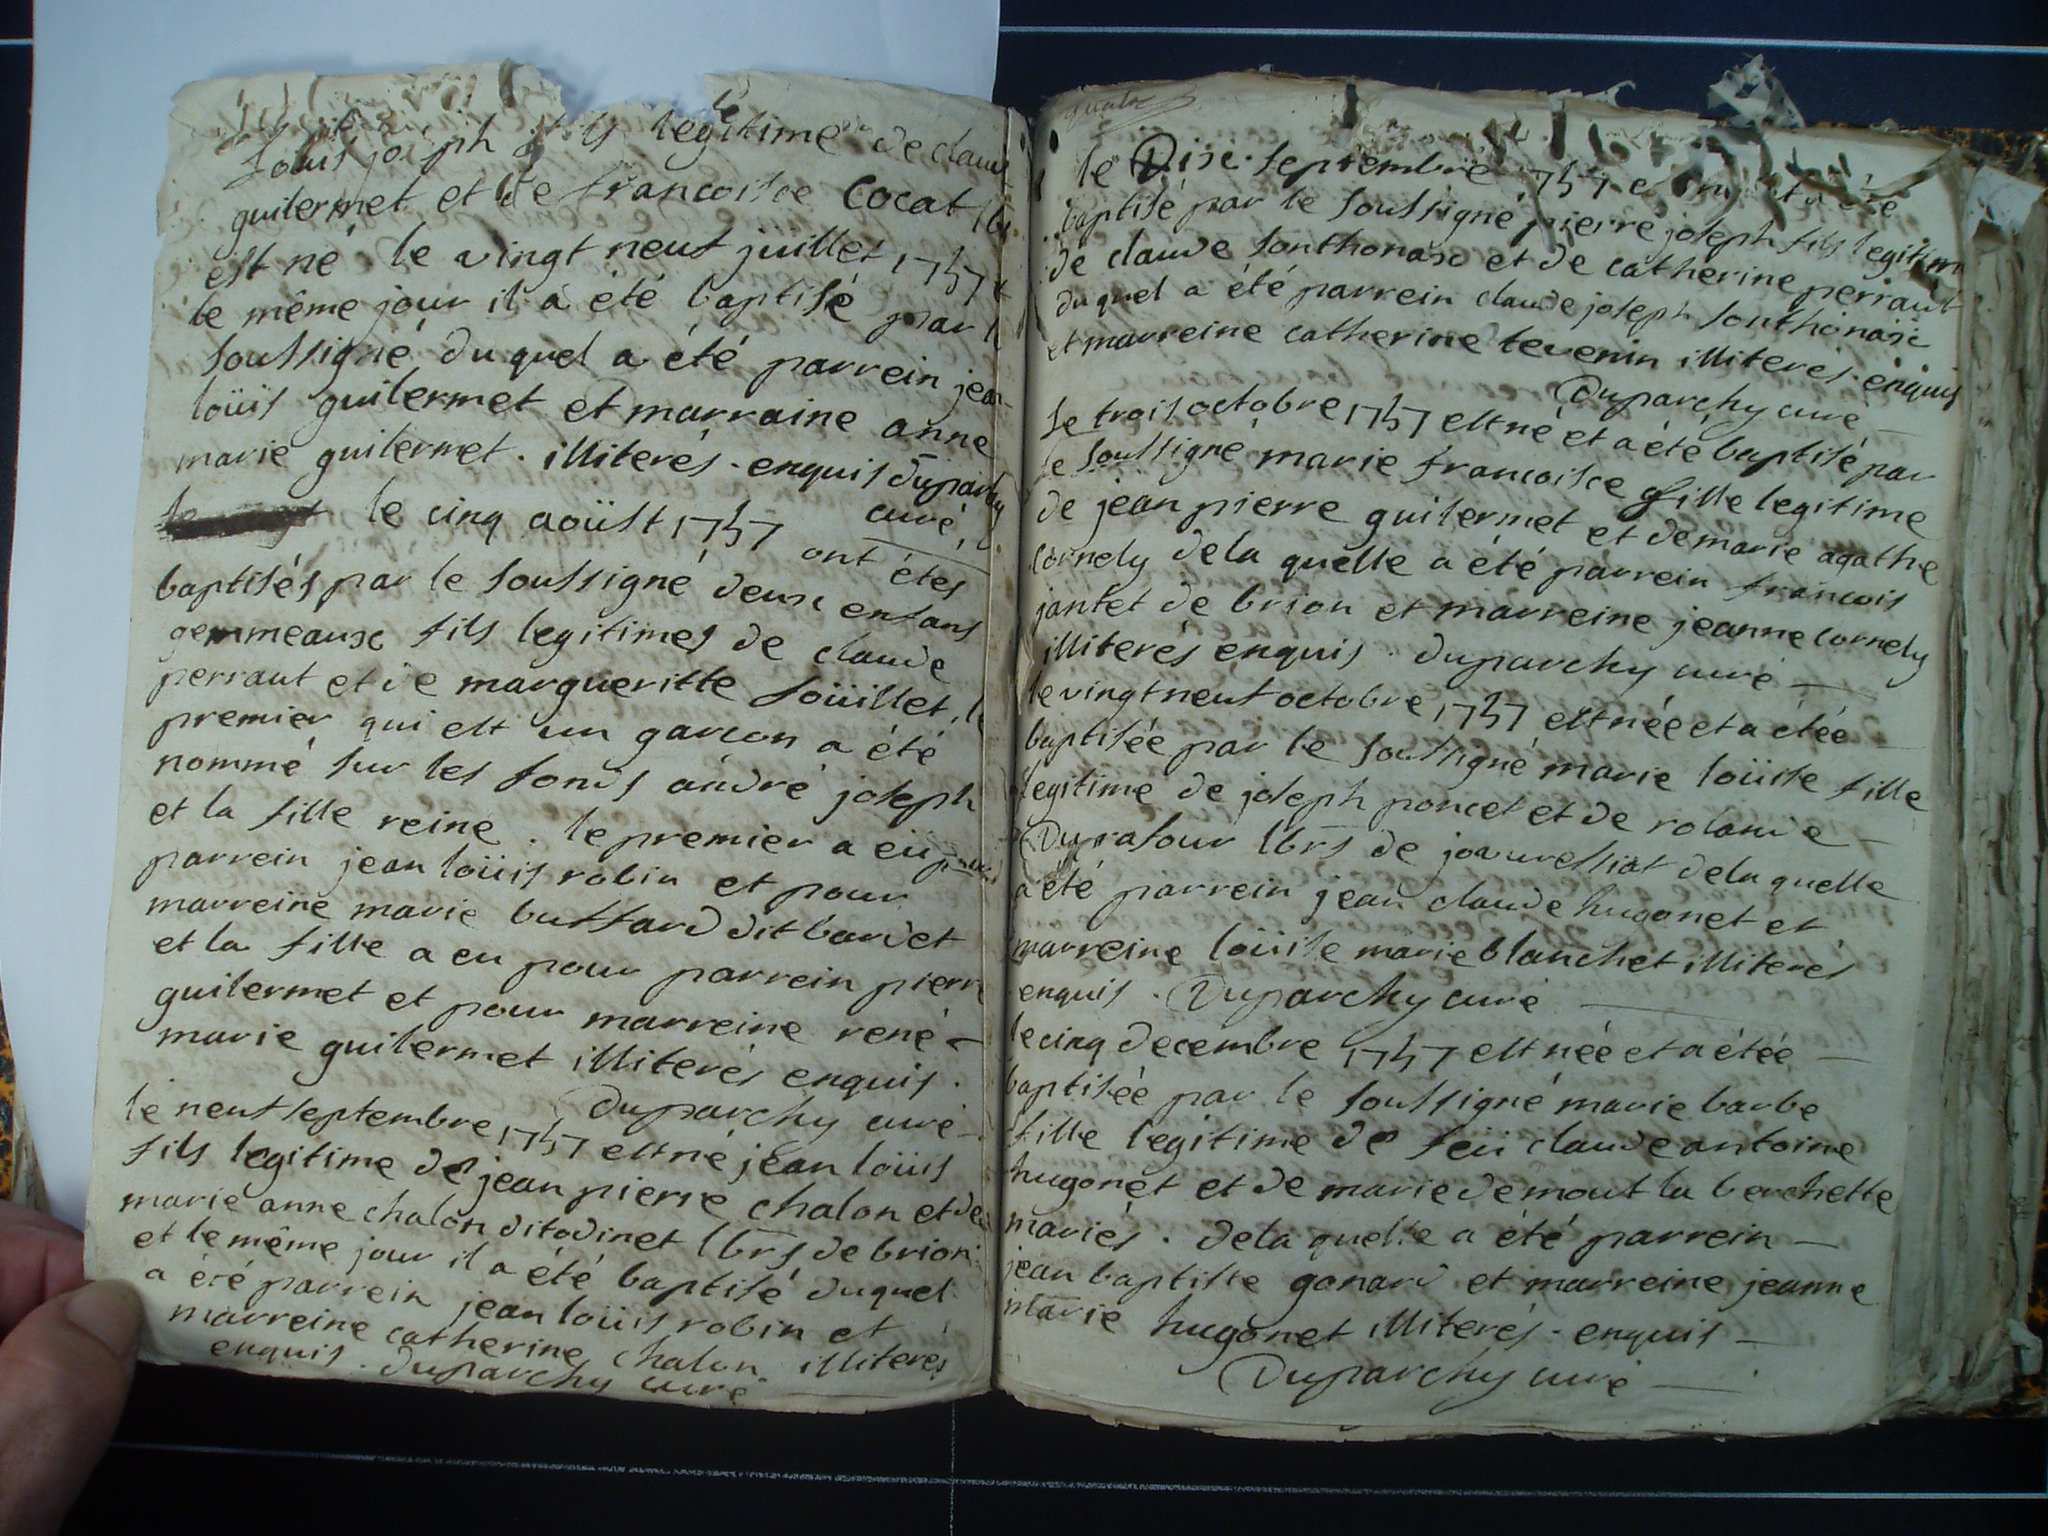 loüis joseph fils legitime de claude
guilermet et de francoise Cocat lbrs
est né le vingt neuf juillet 1757 et
le même jour il a été baptisé par le
soussigné duquel a été parrein jean
loüis guilermet et marraine anne
marie guilermet. illiterés. enquis Duparchy
curé
le cinq aoüst 1757 ont étés
baptisés par le soussigné deux enfans
gemmeaux fils legitimes de claude
perraut et de margueritte soüillet, le
premier qui est un garcon a été
nommé sur les fonds andré joseph
et la fille reine. le premier a eü pour
parrein jean loüis robin et pour
marreine marie buffard dit bardet
et la fille a eu pour parrein pierre
guilermet et pour marreine rené
marie guilermet illiterés enquis.
Duparchy curé
le neuf septembre 1757 est né jean loüis
fils legitime de jean pierre chalon et de
marie anne chalon dit odinet lbrs de brion
et le même jour il a été baptisé duquel
a été parrein jean loüis robin et
marreine catherine chalon illiterés
enquis. Duparchy curé
quatre
le Dix septembre 1757 est né et a été
baptisé par le soussigné pierre joseph fils legitime
de claude sonthonax et de catherine perraut
duquel a été parrein claude joseph sonthonax
et marreine catherine tevenin illiterés enquis
Duparchy curé
le trois octobre 1757 est né et a été baptisé par
le soussigné marie francoise fille legitime
de jean pierre guilermet et de marie agathe
cornely de la quelle a été parrein francois
jantet de brion et marreine jeanne cornely
illiterés enquis. Duparchy curé
le vingt neuf octobre 1757 est née et a étée
baptisée par le soussigné marie loüise fille
legitime de joseph poncet et de rolande
Durafour lbrs de de la quelle
a été parrein jean claude hugonet et
marreine loüise marie blanchet illiterés
enquis. Duparchy curé
le cinq decembre 1757 est née et a étée
baptisée par le soussigné marie barbe
fille legitime de feü claude antoine
hugonet et de marie demout la berchette
mariés. de la quelle a été parrein
jean baptiste gonard et marreine jeanne
marie hugonet illiterés. enquis
Duparchy curé